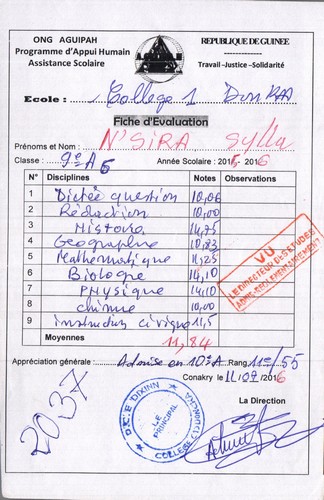 ONG AGUIPAH
Programme d'Appui Humain
Assistance Scolaire
REPUBLIQUE DE GUINEE
Travail -Justice -Solidarité
Ecole : College 1 Donka
Fiche d'Evaluation
Prénoms et Nom : N'SIRA Sylla
Classe : 9e A5 Année Scolaire : 2015-2016
N° Disciplines Notes Observations
1 Dictée question 10,06
2 Rédaction 10,00
3 Histoire 14,75
4 Geographie 10,83
5 Mathématique 11,25
6 Biologie 14,10
7 Physique 14,10
8 chimie 10,00
9 instruction civique 11,5
Moyennes 11,84
VU
LE DIRECTEUR DES ETUDES
Appréciation générale : Admise en 10e A Rang 11e/55
Conakry le 11/07/2016
La Direction
2037
D.C.E DIXINN
LE PRINCIPAL
COLLEGE